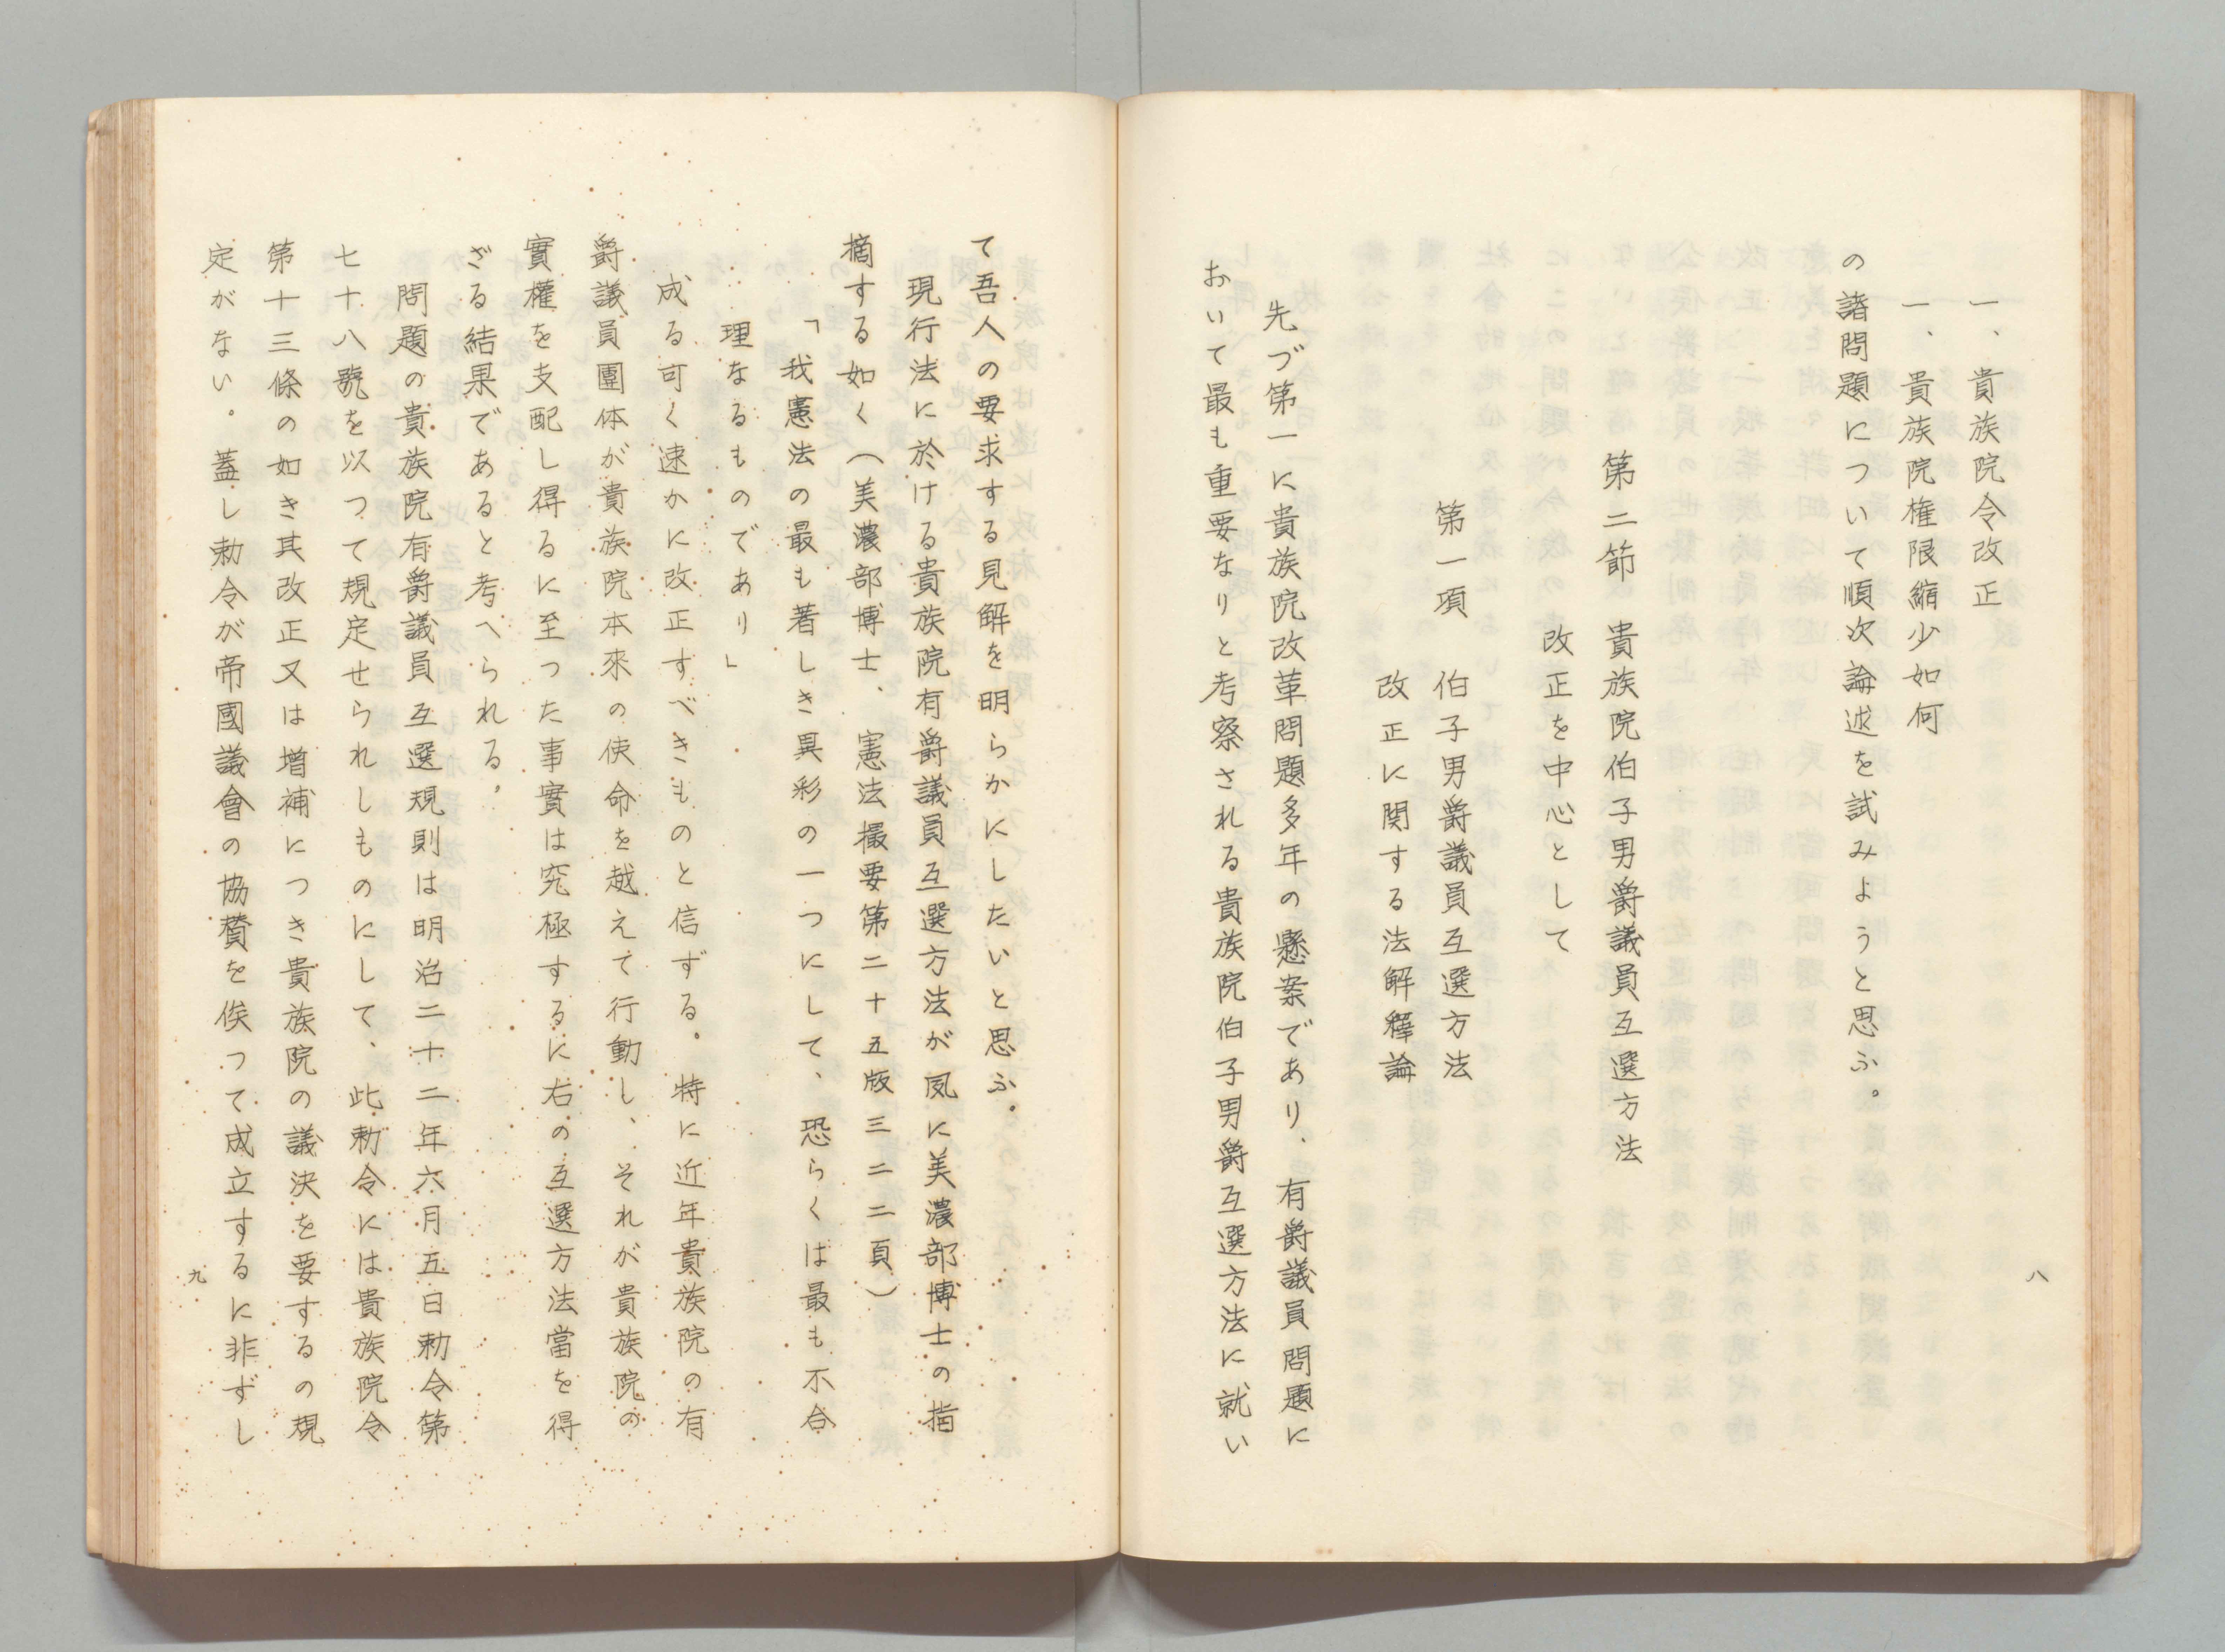 一、貴族院令改正
一、貴族院権限縮少如何
の諸問題について順次論述を試みようと思ふ。
第二節　貴族院伯子男爵議員互選方法
改正を中心として
第一項　伯子男爵議員互選方法
改正に関する法解釋論
先づ第一に貴族院改革問題多年の懸案であり、有爵議員問題に
おいて最も重要なりと考察される貴族院伯子男爵互選方法に就い
八
て吾人の要求する見解を明らかにしたいと思ふ。
現行法に於ける貴族院有爵議員互選方法が夙に美濃部博士の指
摘する如く（美濃部博士、憲法撮要第二十五版三二二頁）
「我憲法の最も著しき異彩の一つにして、恐らくは最も不合
理なるものであり」
成る可く速かに改正すべきものと信ずる。特に近年貴族院の有
爵議員團体が貴族院本來の使命を越えて行動し、それが貴族院の
實權を支配し得るに至つた事實は究極するに右の互選方法當を得
ざる結果であると考へられる。
問題の貴族院有爵議員互選規則は明治二十二年六月五日勅令第
七十八號を以つて規定せられしものにして、此勅令には貴族院令
第十三條の如き其改正又は增補につき貴族院の議決を要するの規
定がない。蓋し勅令が帝國議會の協賛を俟つて成立するに非ずし
九